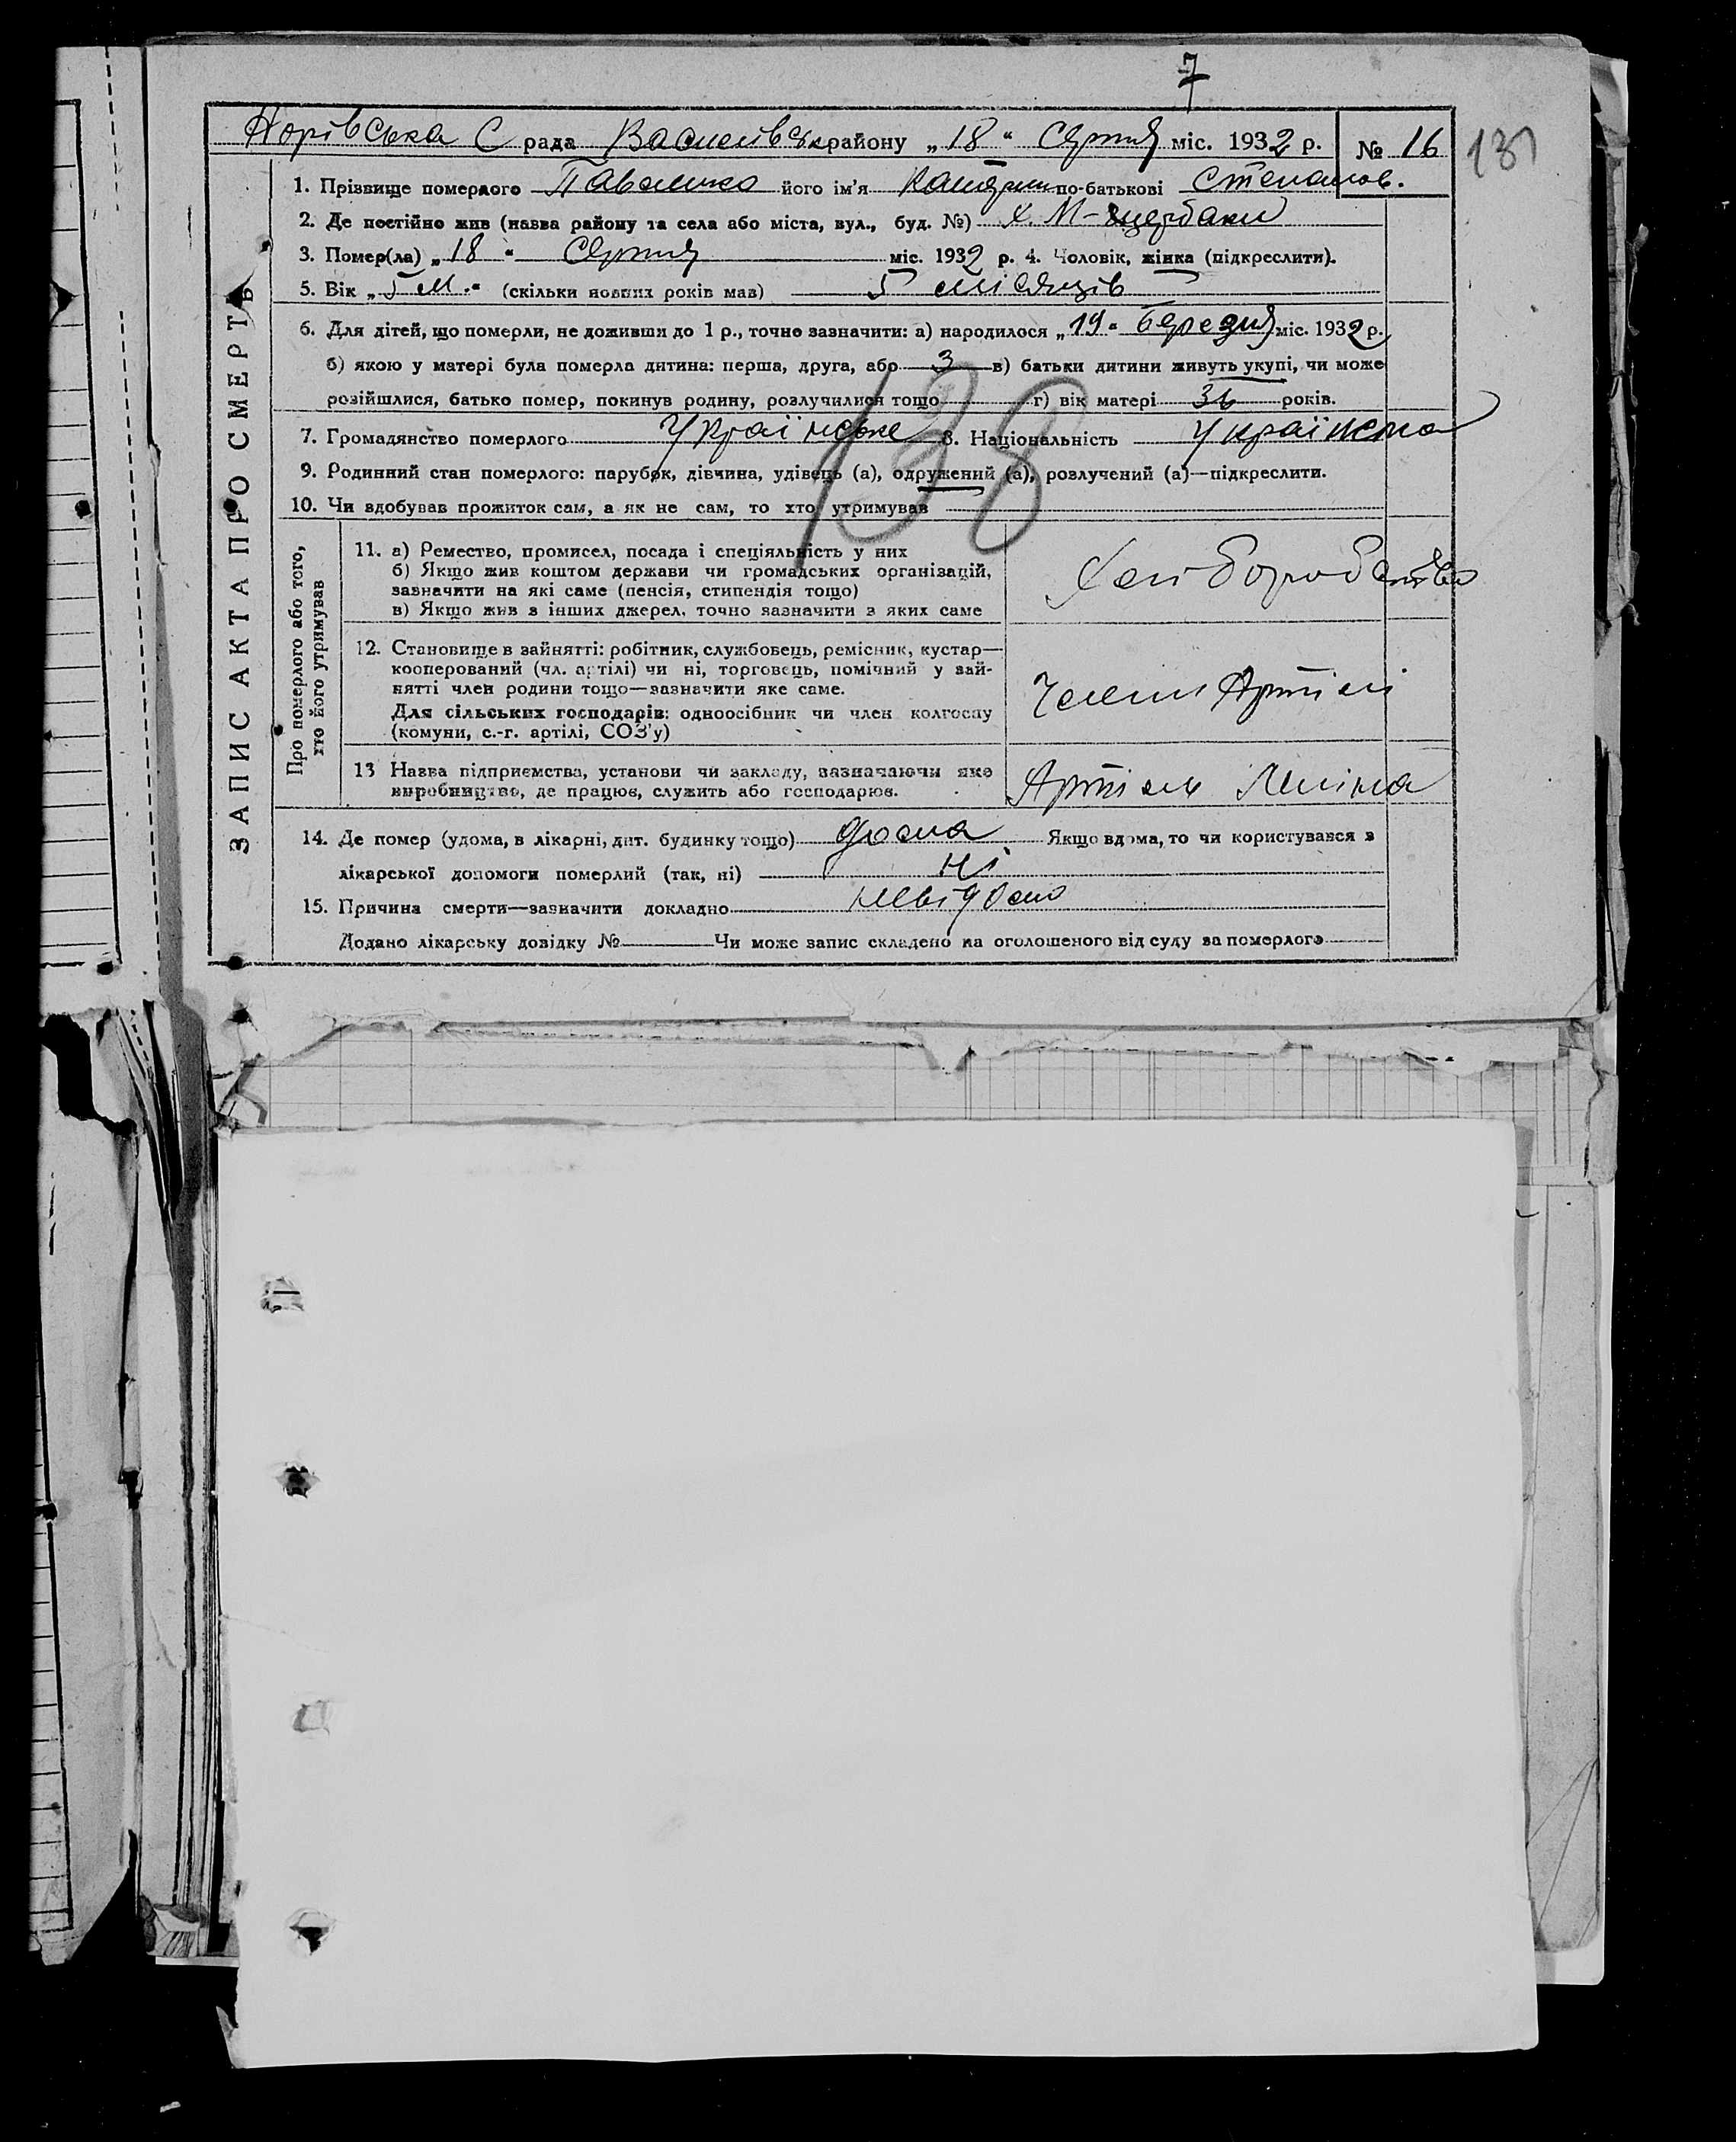 7
Норівська С рада Василівськ району „18“ Серпня міс. 1932 р. № 16
1. Прізвище померлого Павленко його ім’я по-батькові Степанов.
2. Де постійно жив (назва району та села або міста, вул., буд. №) х. М-Щербаки
3. Помер(ла) „18“ Серпня міс. 1932 р. 4. Чоловік, жінка (підкреслити).
5. Вік „5 м.“ (скільки повних років мав) 5 місяців
6. Для дітей, що померли, не доживши до 1 р., точно зазначити: а) народилося „19“ березня міс. 1932 р.
б) якою у матері була померла дитина: перша, друга, або 3 в) батьки дитини живуть укупі, чи може
розійшлися, батько помер, покинув родину, розлучилися тощо г) вік матері 36 років.
7. Громадянство померлого Українське 8. Національність Українка
9. Родинний стан померлого: парубок, дівчина, удівець (а), одружений (а), розлучений (а)—підкреслити.
10. Чи здобував прожиток сам, а як не сам, то хто утримував
138
ЗАПИС АКТА ПРО СМЕРТЬ
Про померлого або того,
хто його утримував
11. а) Ремество, промисел, посада і спеціяльність у них
б) Якщо жив коштом держави чи громадських організацій,
зазначити на які саме (пенсія, стипендія тощо)
в) Якщо жив з інших джерел, точно зазначити з яких саме
Хліборобство
12. Становище в зайнятті: робітник, службовець, ремісник, кустар—
кооперований (чл. артілі) чи ні, торговець, помічний у зай-
нятті член родини тощо—зазначити яке саме.
Для сільських господарів: одноосібник чи член колгоспу
(комуни, с.-г. артілі, СОЗ’у)
Член Артілі
13 Назва підприємства, установи чи закладу, зазначаючи яке
виробництво, де працює, служить або господарює.
Артіль Леніна
14. Де помер (удома, в лікарні, дит. будинку тощо) дома Якщо вдома, то чи користувався з
лікарської допомоги померлий (так, ні) ні
15. Причина смерти—зазначити докладно невідомо
Додано лікарську довідку № Чи може запис складено на оголошеного від суду за померлого